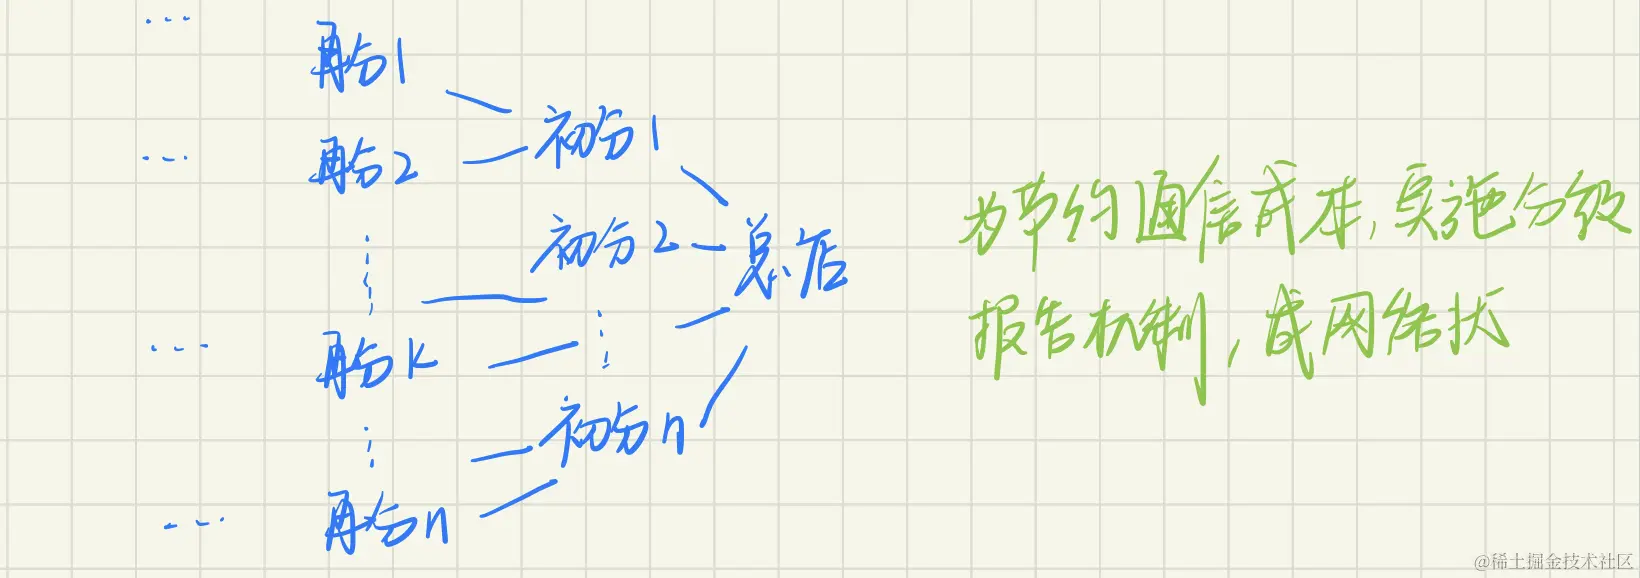 ...
再分1
初分1
... 再分2
初分2
总店
... 再分k
初分n
... 再分n
为节约通信成本,实施分级
报告机制,成网络状
@稀土掘金技术社区